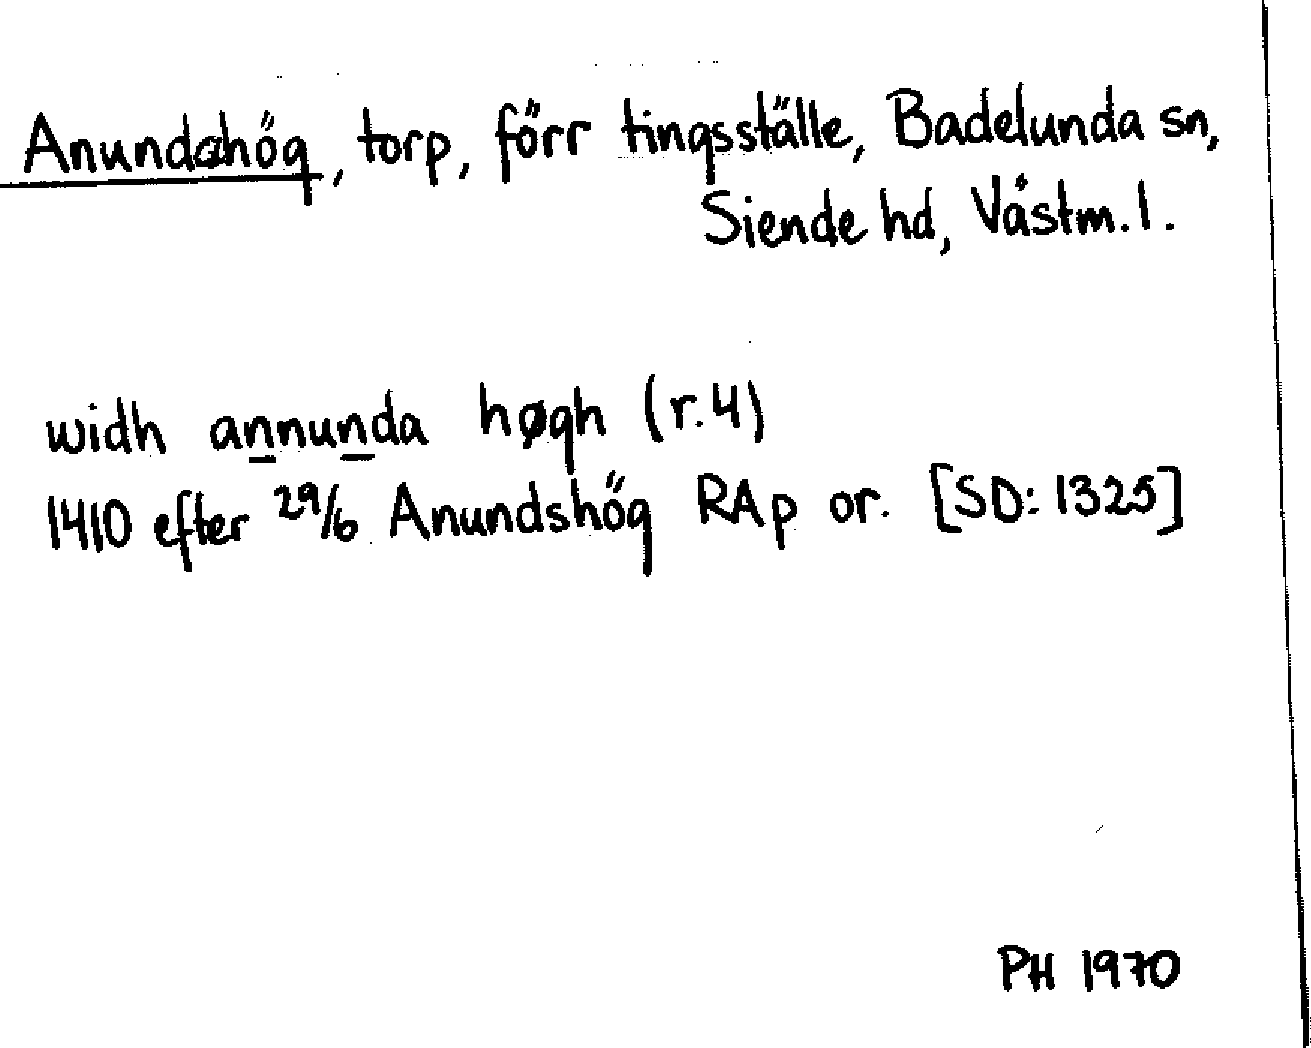 Anundshög, torp, förr tingsställe, Badelunda sn,
Siende hd, Västm. l.
widh annunda høgh (r. 4)
1410 efter 29/6 Anundshög RAp or. [SD: 1325]
PH 1970